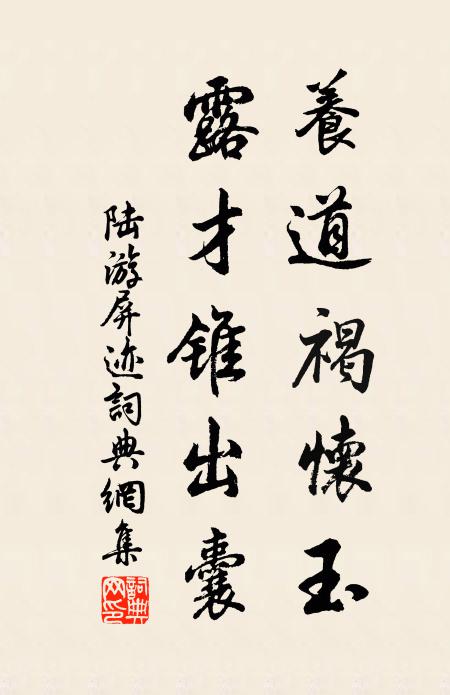 養道褐懷玉
露才錐出囊
陆游屏迹詞典網集
詞典網印